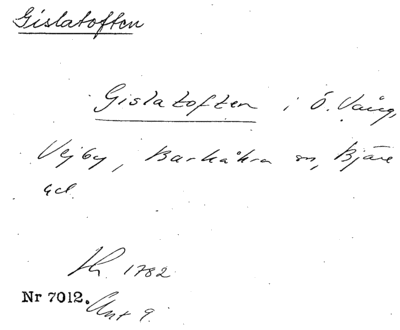 Gislatoften
Gislatoften i Ö. Vång,
Vejby, Barkåkra sn, Bjäre
hd.
1782
Nr 7012. Akt 9.